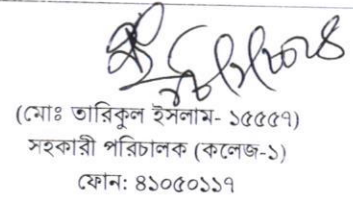 (মোঃ তারিকুল ইসলাম- ১৫৫৫৭)
সহকারী পরিচালক (কলেজ-১)
ফোন: ৪১০৫০১১৭